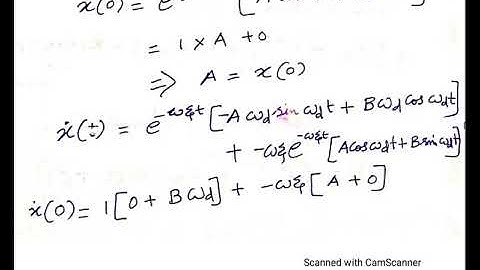 x(0) = e [A
= 1 × A + 0
⇒ A = x(0)
ẋ(t) = e^{-ωξt} [-Aω_d sin ω_d t + Bω_d cos ω_d t]
+ -ωξ e^{-ωξt} [A cos ω_d t + B sin ω_d t]
ẋ(0) = 1 [0 + Bω_d] + -ωξ [A + 0]
Scanned with CamScanner